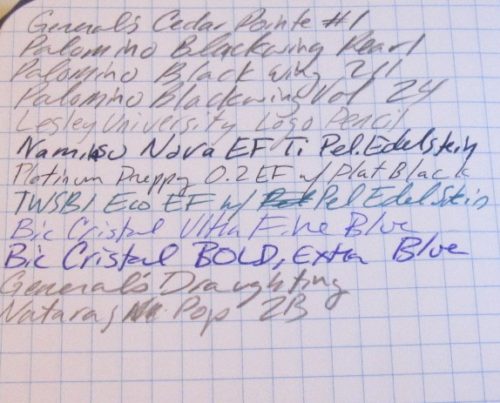 General's Cedar Pointe #1
Palomino Blackwing Pearl
Palomino Blackwing 211
Palomino Blackwing Vol 24
Lesley University Logo Pencil
Namiso Nova EF Ti Pel.Edelstein
Platinum Preppy 0.2 EF w/ Plat Black
TWSBI Eco EF w/ Pel Edelstein
Bic Cristal Ultra Fine Blue
Bic Cristal BOLD, Extra Blue
General's Draughting
Nataraj Pop 2B